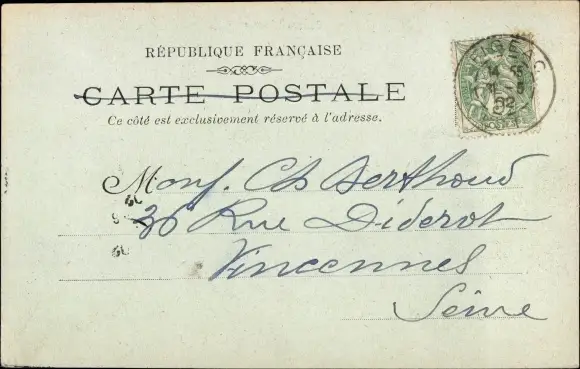 RÉPUBLIQUE FRANÇAISE
CARTE POSTALE
Ce côté est exclusivement réservé à l'adresse.
FIGEAC
02
Monſ. Ch Berthoud
36 Rue Diderot
Vincennes
Seine